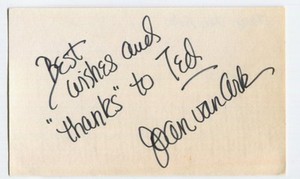 Best
wishes and
"thanks" to Ted
Joan Van Ark